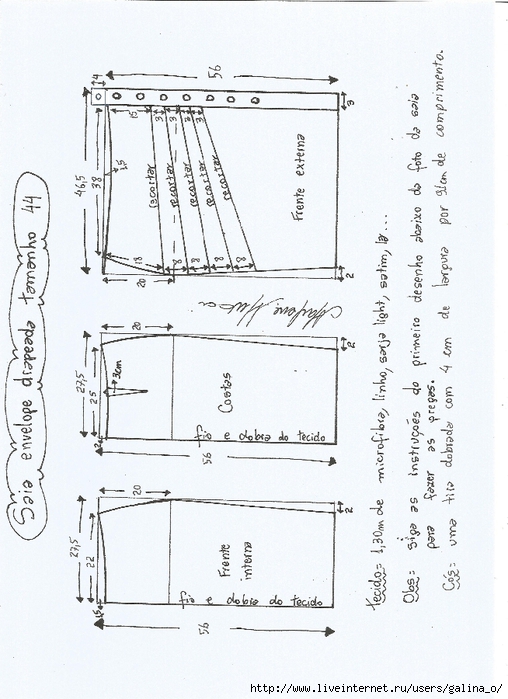 Saia envelope drapeada tamanho 44
27,5
22
1,5
20
Frente
interna
fio e dobra do tecido
56
2
27,5
25
2
3cm
20
Costas
fio e dobra do tecido
56
2
46,5
38
1,5
4
56
15
3
3
3
3
recortar
recortar
recortar
recortar
recortar
18
8
8
8
8
20
Frente externa
3
2
Tecido= 1,30m de microfibra, linho, sarja light, satim, lã...
Obs= Siga as instruções do primeiro desenho abaixo da foto da saia
para fazer as pregas.
Cós= uma tira dobrada com 4 cm de largura por 91cm de comprimento.
http://www.liveinternet.ru/users/galina_o/